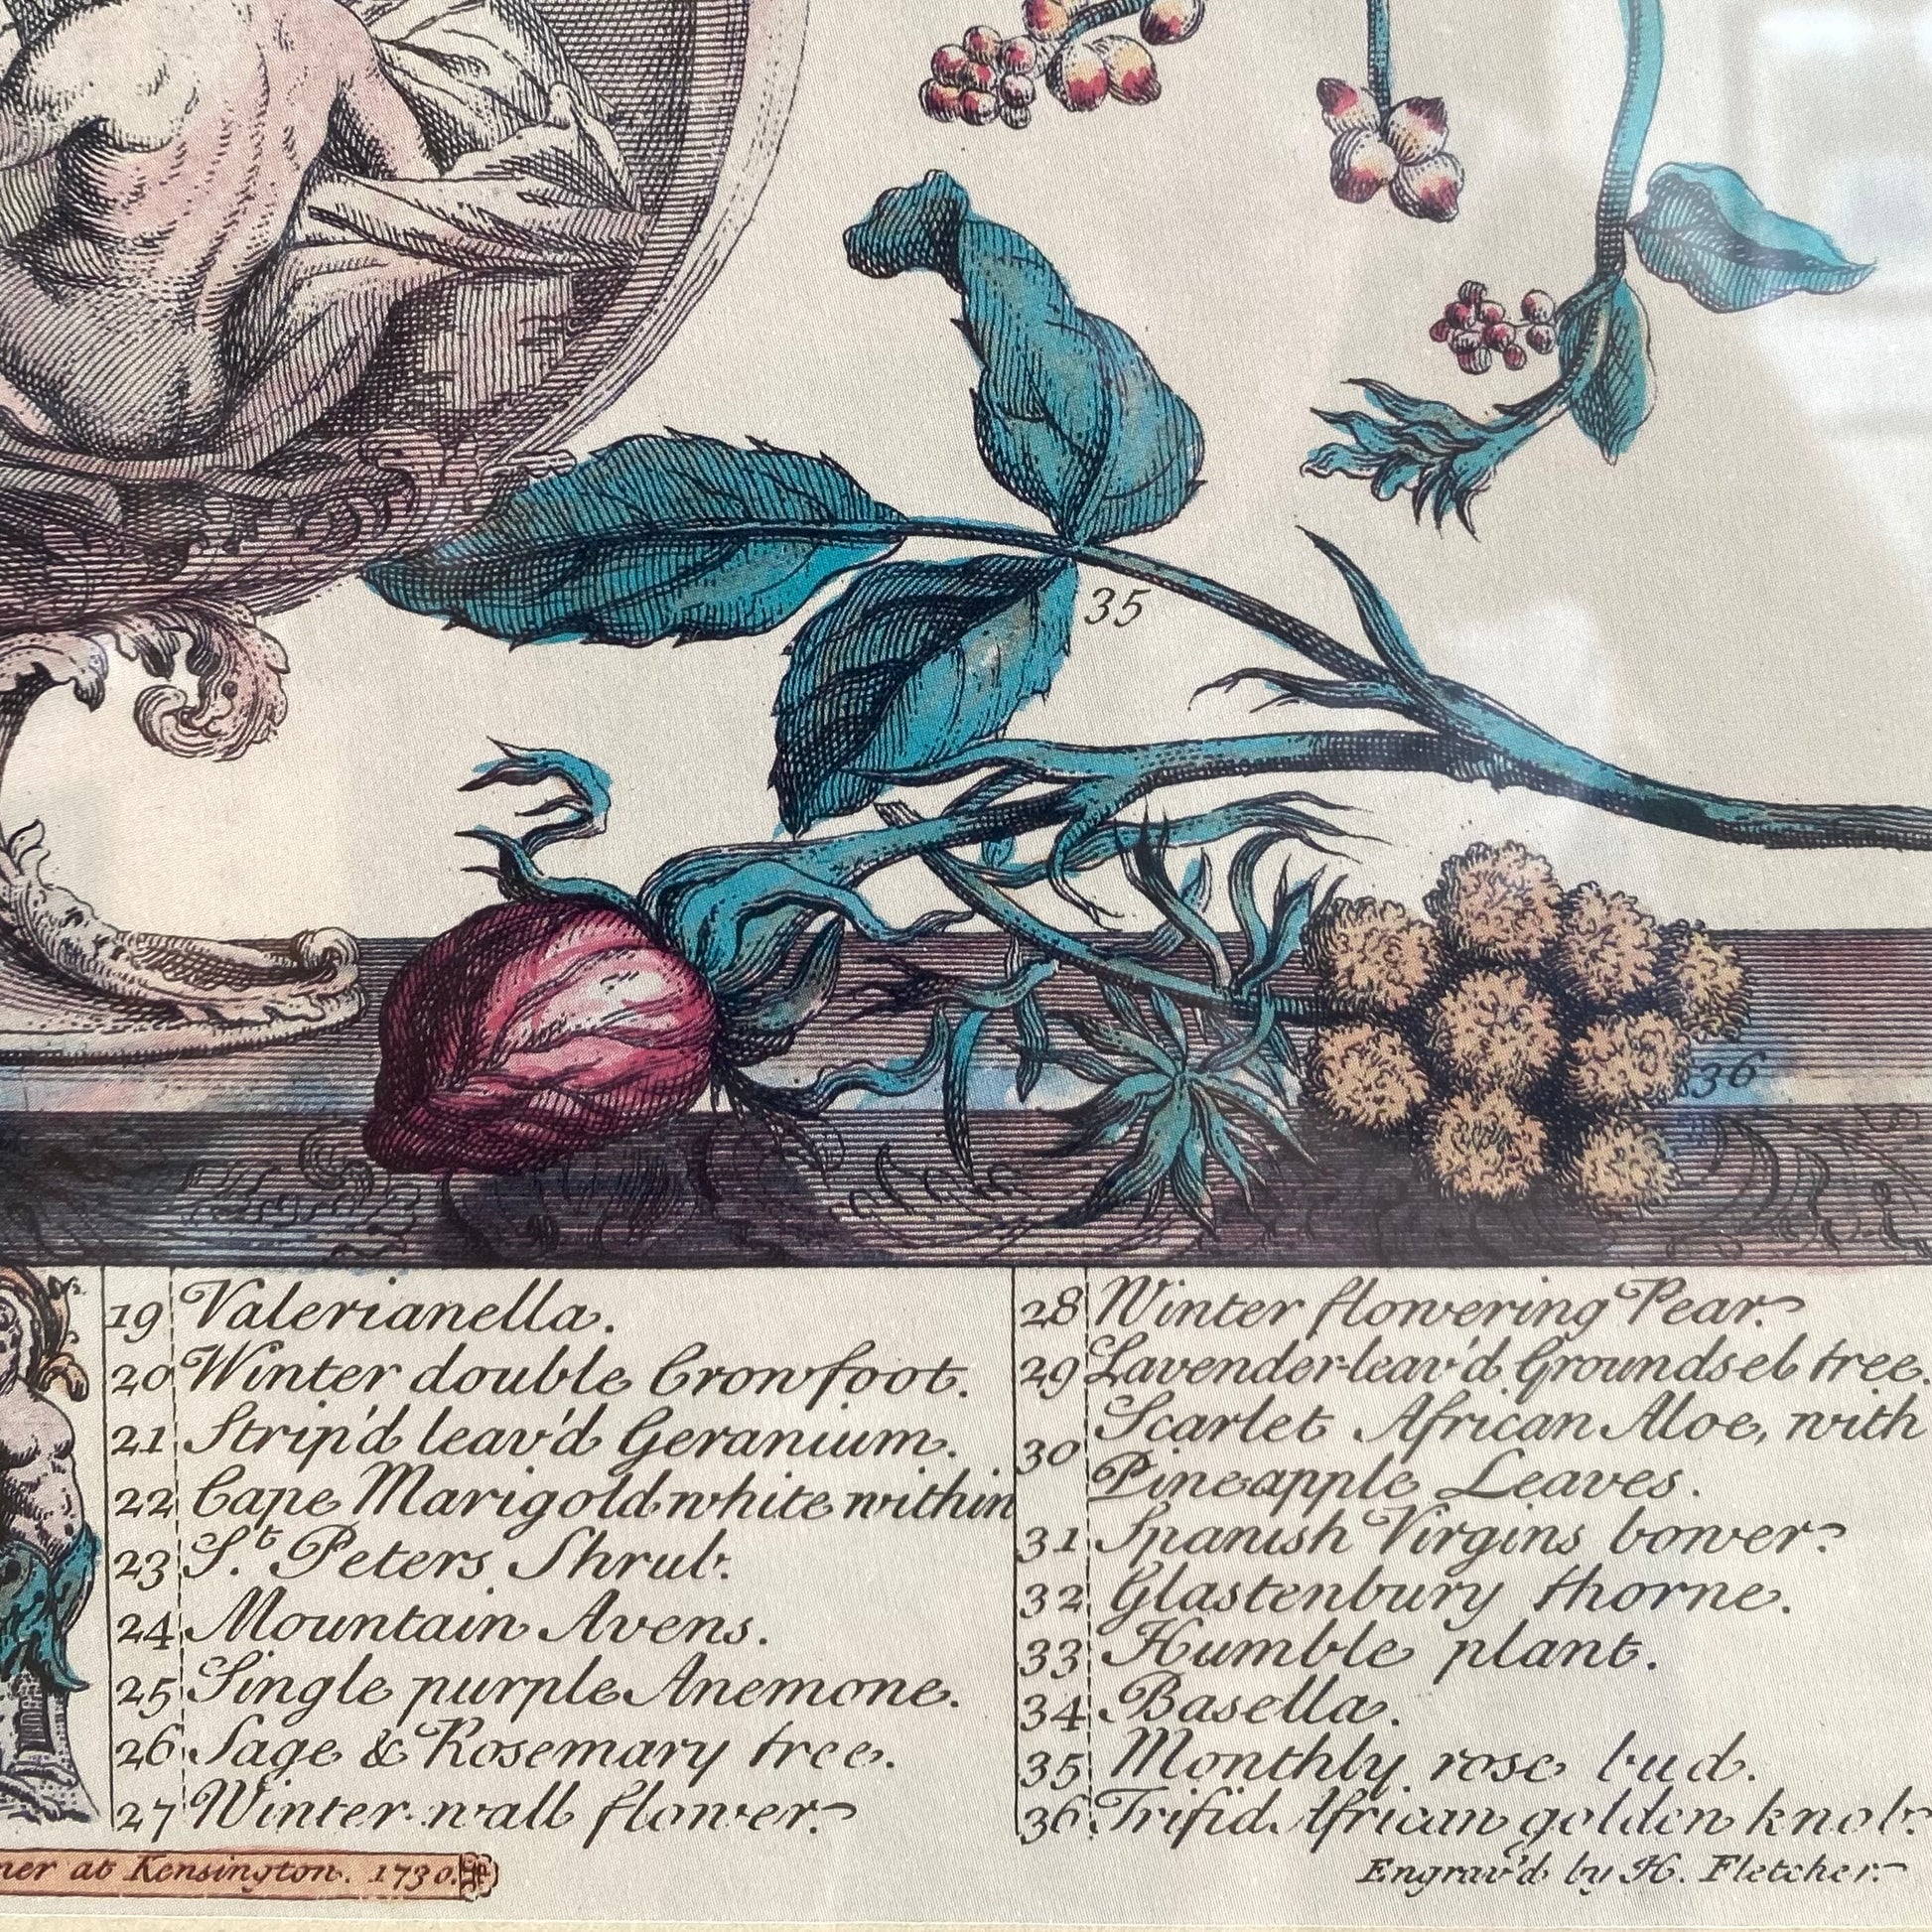 35
36
19 Valerianella.
20 Winter double Crowfoot.
21 Strip'd leav'd Geranium.
22 Cape Marigold white within
23 S.t Peters Shrub.
24 Mountain Avens.
25 Single purple Anemone.
26 Sage & Rosemary tree.
27 Winter wall flower.
28 Winter flowering Pear.
29 Lavender-leav'd Groundsel tree.
30 Scarlet African Aloe, with
Pineapple Leaves.
31 Spanish Virgins bower.
32 Glastenbury thorne.
33 Humble plant.
34 Basella.
35 Monthly rose bud.
36 Trifid African golden knob.
ner at Kensington. 1730.
Engrav'd by H. Fletcher.